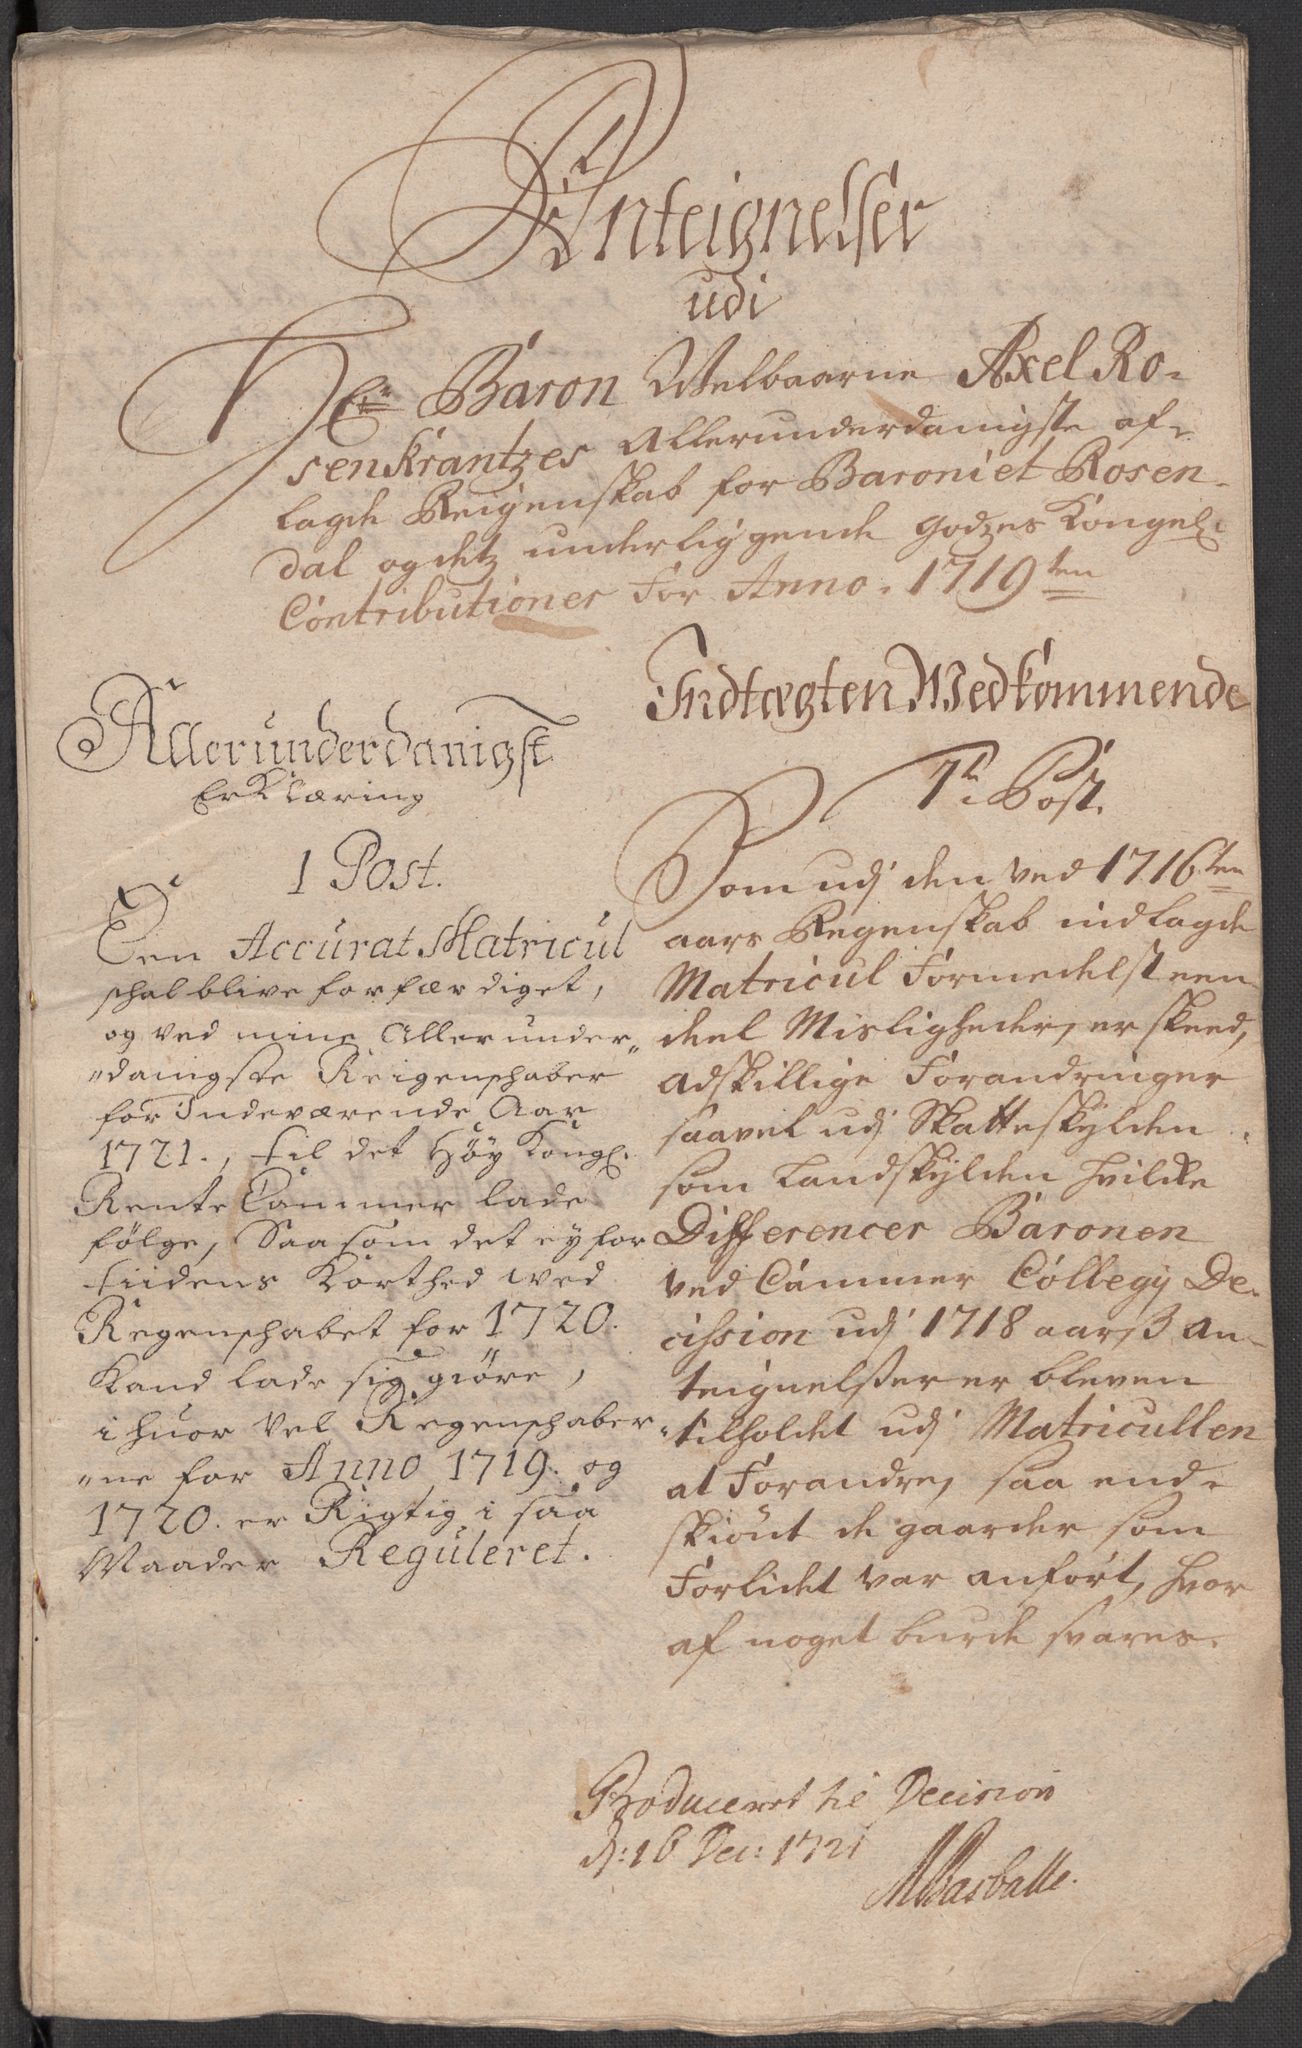 Anteignelser
udi
Hr Baron Welbaarne Axel Ro-
senkrantzes Allerunderdanigste af-
lagde Reigenskab for Baroniet Rosen-
dal og detz underliggende Godzes Kongel:
Contributioner for Anno. 1719ten
Allerunderdanigst
Erklæring
1 Post.
Een Accurat Matricul
schal blive forfærdiget,
og ved mine Allerunder„
„danigste Reigenschaber
for Indeværende Aar
1721., til det Høy Kongl.
Rente Cammer lade
følge, Saasom det ey for
tiidens Korthed wed
Regenschabet for 1720.
Kand lade sig giøre,
ihuor vel Regenschaber„
„ne for Anno 1719. og
1720. er Rigtig i saa
Maader Reguleret.
Indtægten Wedkommende
1te Post.
Som udj den ved 1716ten
aars Regenskab indlagde
Matricul Formedelst een
deel Misligheder, er skeed,
adskillige Forandringer
saavel udj Skatteskylden
som Landskylden hvilcke
Differencer Baronen
ved Cammer Collegij De-
cission udj 1718 aarß An-
teignelßer er bleven
tilholdet udj Matricullen
at Forandre, saa end-
skiønt de gaarder som
Forlidet var anført, hvor
af noget burde svares.
Produceret til Decision
d: 16 Dec: 1721
MBasballe.